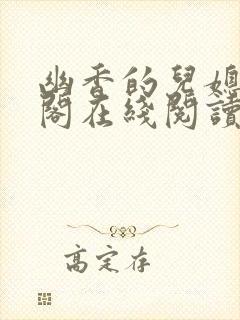 幽香的兒媳
閣在綫閱讀
高定存